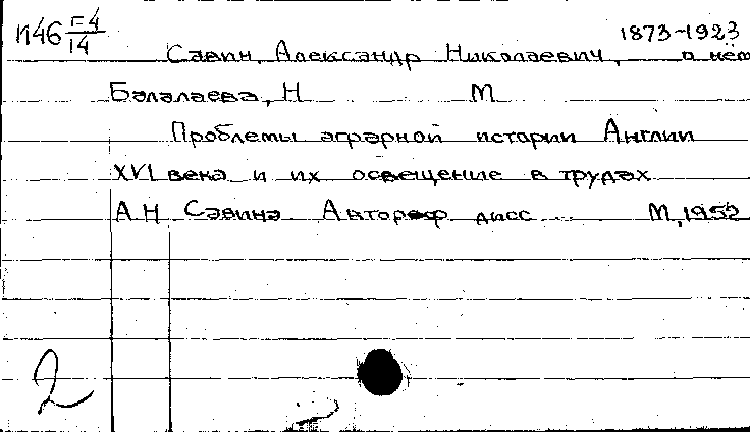 И46 Г-4/14
1873-1923
Савин, Александр Николаевич, о нём
Балалаева, Н М
Проблемы аграрной истории Англии
XVI века и их освещение в трудах
А Н Савина Автореф дисс М, 1952
2